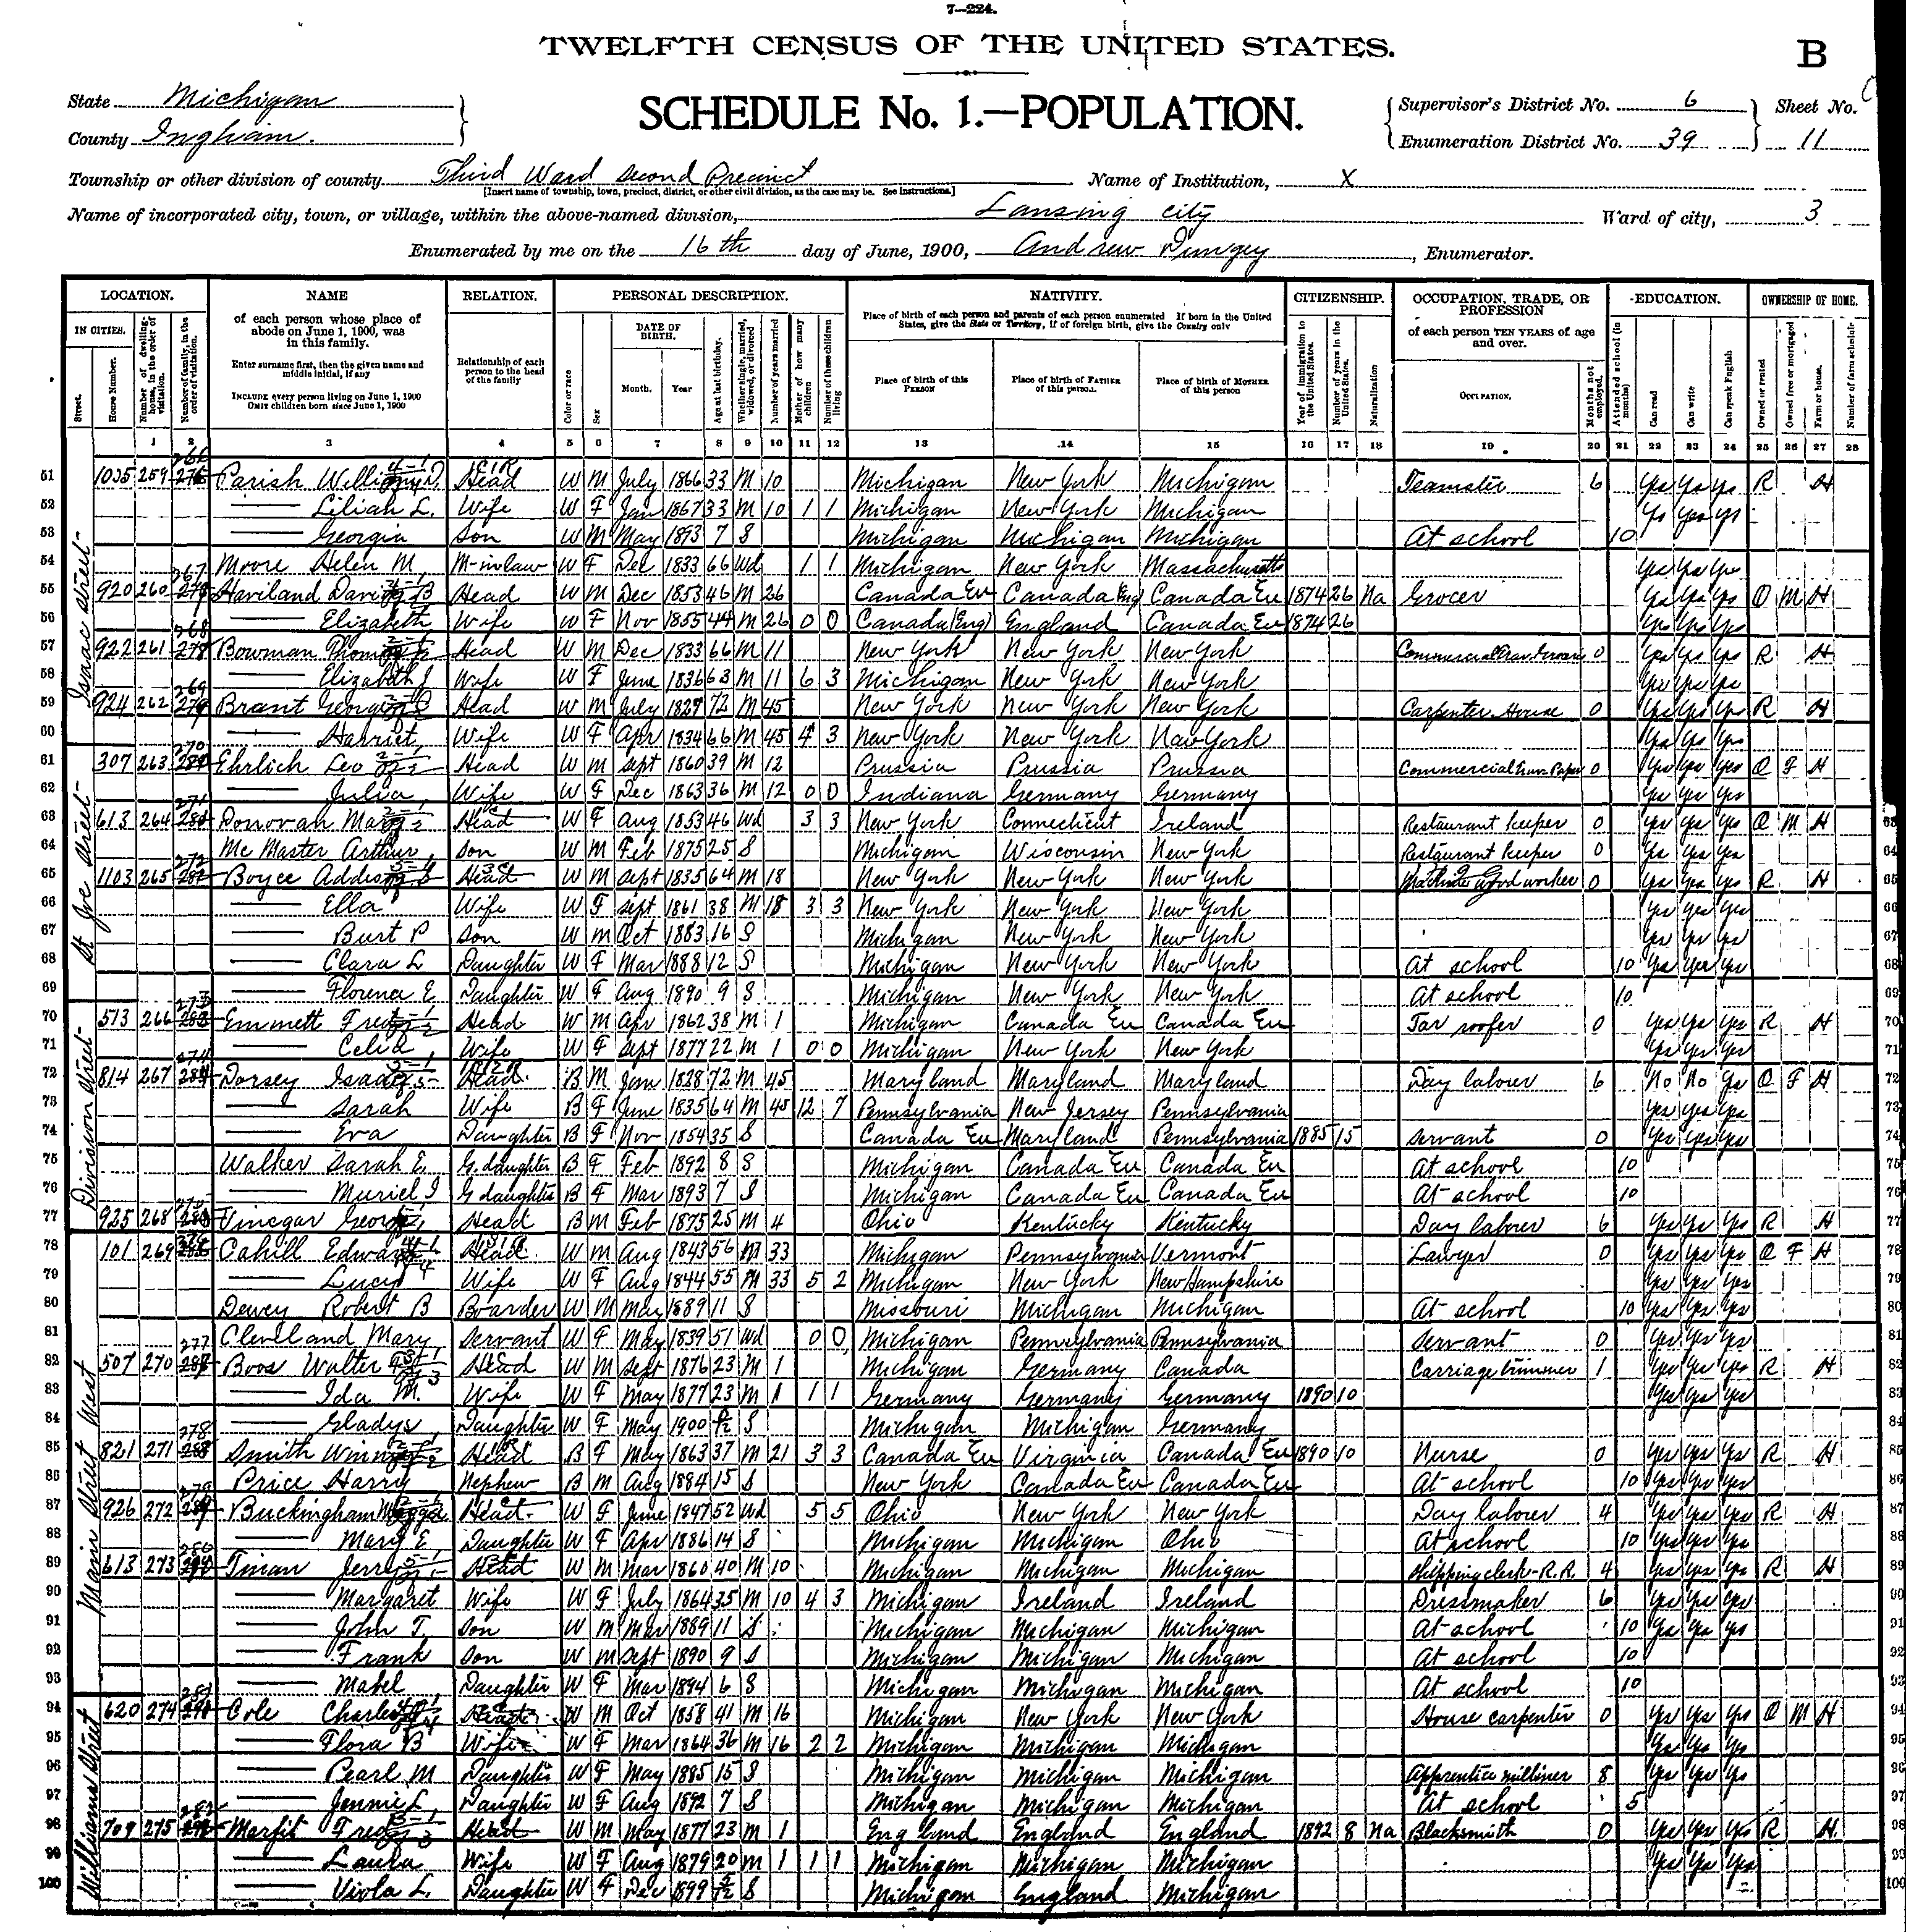 7-224.
TWELFTH CENSUS OF THE UNITED STATES.
B
State Michigan
County Ingham.
SCHEDULE No. 1.—POPULATION.
Supervisor's District No. 6
Sheet No.
Enumeration District No. 39
11
Township or other division of county Third Ward Second Precinct
Name of Institution, X
[Insert name of township, town, precinct, district, or other civil division, as the case may be. See instructions.]
Name of incorporated city, town, or village, within the above-named division, Lansing city
Ward of city, 3
Enumerated by me on the 16th day of June, 1900, Andrew , Enumerator.
LOCATION. NAME RELATION. PERSONAL DESCRIPTION. NATIVITY. CITIZENSHIP. OCCUPATION, TRADE, OR PROFESSION EDUCATION. OWNERSHIP OF HOME.
IN CITIES. Street. House Number. Number of dwelling-house, in the order of visitation. Number of family, in the order of visitation.
of each person whose place of abode on June 1, 1900, was in this family.
Enter surname first, then the given name and middle initial, if any
INCLUDE every person living on June 1, 1900
OMIT children born since June 1, 1900
Relationship of each person to the head of the family
Color or race Sex DATE OF BIRTH. Month. Year Age at last birthday. Whether single, married, widowed, or divorced Number of years married Mother of how many children Number of these children living
Place of birth of each person and parents of each person enumerated If born in the United States, give the State or Territory, if of foreign birth, give the Country only
Place of birth of this PERSON Place of birth of FATHER of this person. Place of birth of MOTHER of this person
Year of immigration to the United States. Number of years in the United States. Naturalization
of each person TEN YEARS of age and over. OCCUPATION. Months not employed.
Attended school (in months) Can read Can write Can speak English
Owned or rented Owned free or mortgaged Farm or house. Number of farm schedule
1 2 3 4 5 6 7 8 9 10 11 12 13 14 15 16 17 18 19 20 21 22 23 24 25 26 27 28
Isaac street
51 1035 259 266 Parish William Head W M July 1866 33 M 10 Michigan New York Michigan Teamster 6 Yes Yes Yes R H
52 Lilian L. Wife W F Jan 1867 33 M 10 1 1 Michigan New York Michigan Ys Yes Ys
53 Georgia Son W M May 1893 7 S Michigan Michigan Michigan At school 10
54 Moore Helen M M-in law W F Dec 1833 66 Wd 1 1 Michigan New York Massachusetts Yes Yes Yes
55 920 260 267 Haviland David B Head W M Dec 1853 46 M 26 Canada En Canada Eng Canada En 1874 26 Na Grocer Yes Yes Yes O M H
56 Elizabeth Wife W F Nov 1855 44 M 26 0 0 Canada (Eng) England Canada En 1874 26 Yes Yes Yes
57 922 261 268 Bowman Head W M Dec 1833 66 M 11 New York New York New York Commercial Trav. 0 Yes Yes Yes R H
58 Elizabeth J Wife W F June 1836 63 M 11 6 3 Michigan New York New York Yes Yes Yes
59 924 262 269 Brant George Head W M July 1827 72 M 45 New York New York New York Carpenter House 0 Yes Yes Yes R H
60 Harriet Wife W F Apr 1834 66 M 45 4 3 New York New York New York Yes Yes Yes
St Joe street
61 307 263 270 Ehrlich Leo Head W M Sept 1860 39 M 12 Prussia Prussia Prussia Commercial Trav. Paper 0 Yes Yes Yes O F H
62 Julia Wife W F Dec 1863 36 M 12 0 0 Indiana Germany Germany Yes Yes Yes
63 613 264 271 Donovan Mary Head W F Aug 1853 46 Wd 3 3 New York Connecticut Ireland Restaurant Keeper 0 Yes Yes Yes O M H 63
64 Mc Master Arthur Son W M Feb 1875 25 S Michigan Wisconsin New York Restaurant Keeper 0 Yes Yes Yes 64
65 1103 265 272 Boyce Addison Head W M Sept 1835 64 M 18 New York New York New York wood worker 0 Yes Yes Yes R H 65
66 Ella Wife W F Sept 1861 38 M 18 3 3 New York New York New York Yes Yes Yes 66
67 Burt P Son W M Oct 1883 16 S Michigan New York New York Yes Yes Yes 67
68 Clara L Daughter W F Mar 1888 12 S Michigan New York New York At school 10 Yes Yes Yes 68
69 Florence E Daughter W F Aug 1890 9 S Michigan New York New York At school 10 69
Division street
70 513 266 273 Emmett Fred Head W M Apr 1862 38 M 1 Michigan Canada En Canada En Tar roofer 0 Yes Yes Yes R H 70
71 Celia Wife W F Sept 1877 22 M 1 0 0 Michigan New York New York Yes Yes Yes 71
72 814 267 274 Dorsey Isaac Head B M Jan 1828 72 M 45 Maryland Maryland Maryland Day laborer 6 No No Yes O F H 72
73 Sarah Wife B F June 1835 64 M 45 12 7 Pennsylvania New Jersey Pennsylvania Yes Yes Yes 73
74 Eva Daughter B F Nov 1854 35 S Canada En Maryland Pennsylvania 1885 15 Servant 0 Yes Yes Yes 74
75 Walker Sarah E. G. daughter B F Feb 1892 8 S Michigan Canada En Canada En At school 10 75
76 Muriel I G daughter B F Mar 1893 7 S Michigan Canada En Canada En At school 10 76
77 925 268 275 Vinegar George Head B M Feb 1875 25 M 4 Ohio Kentucky Kentucky Day laborer 6 Yes Yes Yes R H 77
Main street West
78 101 269 276 Cahill Edward Head W M Aug 1843 56 M 33 Michigan Pennsylvania Vermont Lawyer 0 Yes Yes Yes O F H 78
79 Lucy Wife W F Aug 1844 55 M 33 5 2 Michigan New York New Hampshire Yes Yes Yes 79
80 Dewey Robert B Boarder W M May 1889 11 S Missouri Michigan Michigan At school 10 Yes Yes Yes 80
81 Clevlland Mary Servant W F May 1839 51 Wd 0 0 Michigan Pennsylvania Pennsylvania Servant 0 Yes Yes Yes 81
82 507 270 277 Boos Walter Head W M Sept 1876 23 M 1 Michigan Germany Canada Carriage trimmer 1 Yes Yes Yes R H 82
83 Ida M. Wife W F May 1877 23 M 1 1 1 Germany Germany Germany 1890 10 Yes Yes Yes 83
84 Gladys Daughter W F May 1900 0/12 S Michigan Michigan Germany 84
85 821 271 278 Smith Head B F May 1863 37 M 21 3 3 Canada En Virginia Canada En 1890 10 Nurse 0 Yes Yes Yes R H 85
86 Price Harry Nephew B M Aug 1884 15 S New York Canada En Canada En At school 10 Yes Yes Yes 86
87 926 272 279 Buckingham Head W F June 1847 52 Wd 5 5 Ohio New York New York Day laborer 4 Yes Yes Yes R H 87
88 Mary E Daughter W F Apr 1886 14 S Michigan Michigan Ohio At school 10 Yes Yes Yes 88
89 613 273 280 Tinan Jerry Head W M Mar 1860 40 M 10 Michigan Michigan Michigan Shipping clerk-R.R. 4 Yes Yes Yes R H 89
90 Margaret Wife W F July 1864 35 M 10 4 3 Michigan Ireland Ireland Dressmaker 6 Yes Yes Yes 90
91 John T. Son W M Mar 1889 11 S Michigan Michigan Michigan At school 10 Yes Yes Yes 91
92 Frank Son W M Sept 1890 9 S Michigan Michigan Michigan At school 10 92
93 Mabel Daughter W F Mar 1894 6 S Michigan Michigan Michigan At school 10 93
Williams Street
94 620 274 281 Cole Charles Head W M Oct 1858 41 M 16 Michigan New York New York House carpenter 0 Yes Yes Yes O M H 94
95 Flora B Wife W F Mar 1864 36 M 16 2 2 Michigan Michigan Michigan Yes Yes Yes 95
96 Pearl M Daughter W F May 1885 15 S Michigan Michigan Michigan Apprentice milliner 8 Yes Yes Yes 96
97 Jennie L Daughter W F Aug 1892 7 S Michigan Michigan Michigan At school 5 97
98 709 275 282 Marfit Fred Head W M May 1877 23 M 1 England England England 1892 8 Na Blacksmith 0 Yes Yes Yes R H 98
99 Laura Wife W F Aug 1879 20 M 1 1 1 Michigan Michigan Michigan Yes Yes Yes 99
100 Viola L. Daughter W F Dec 1899 5/12 S Michigan England Michigan 100